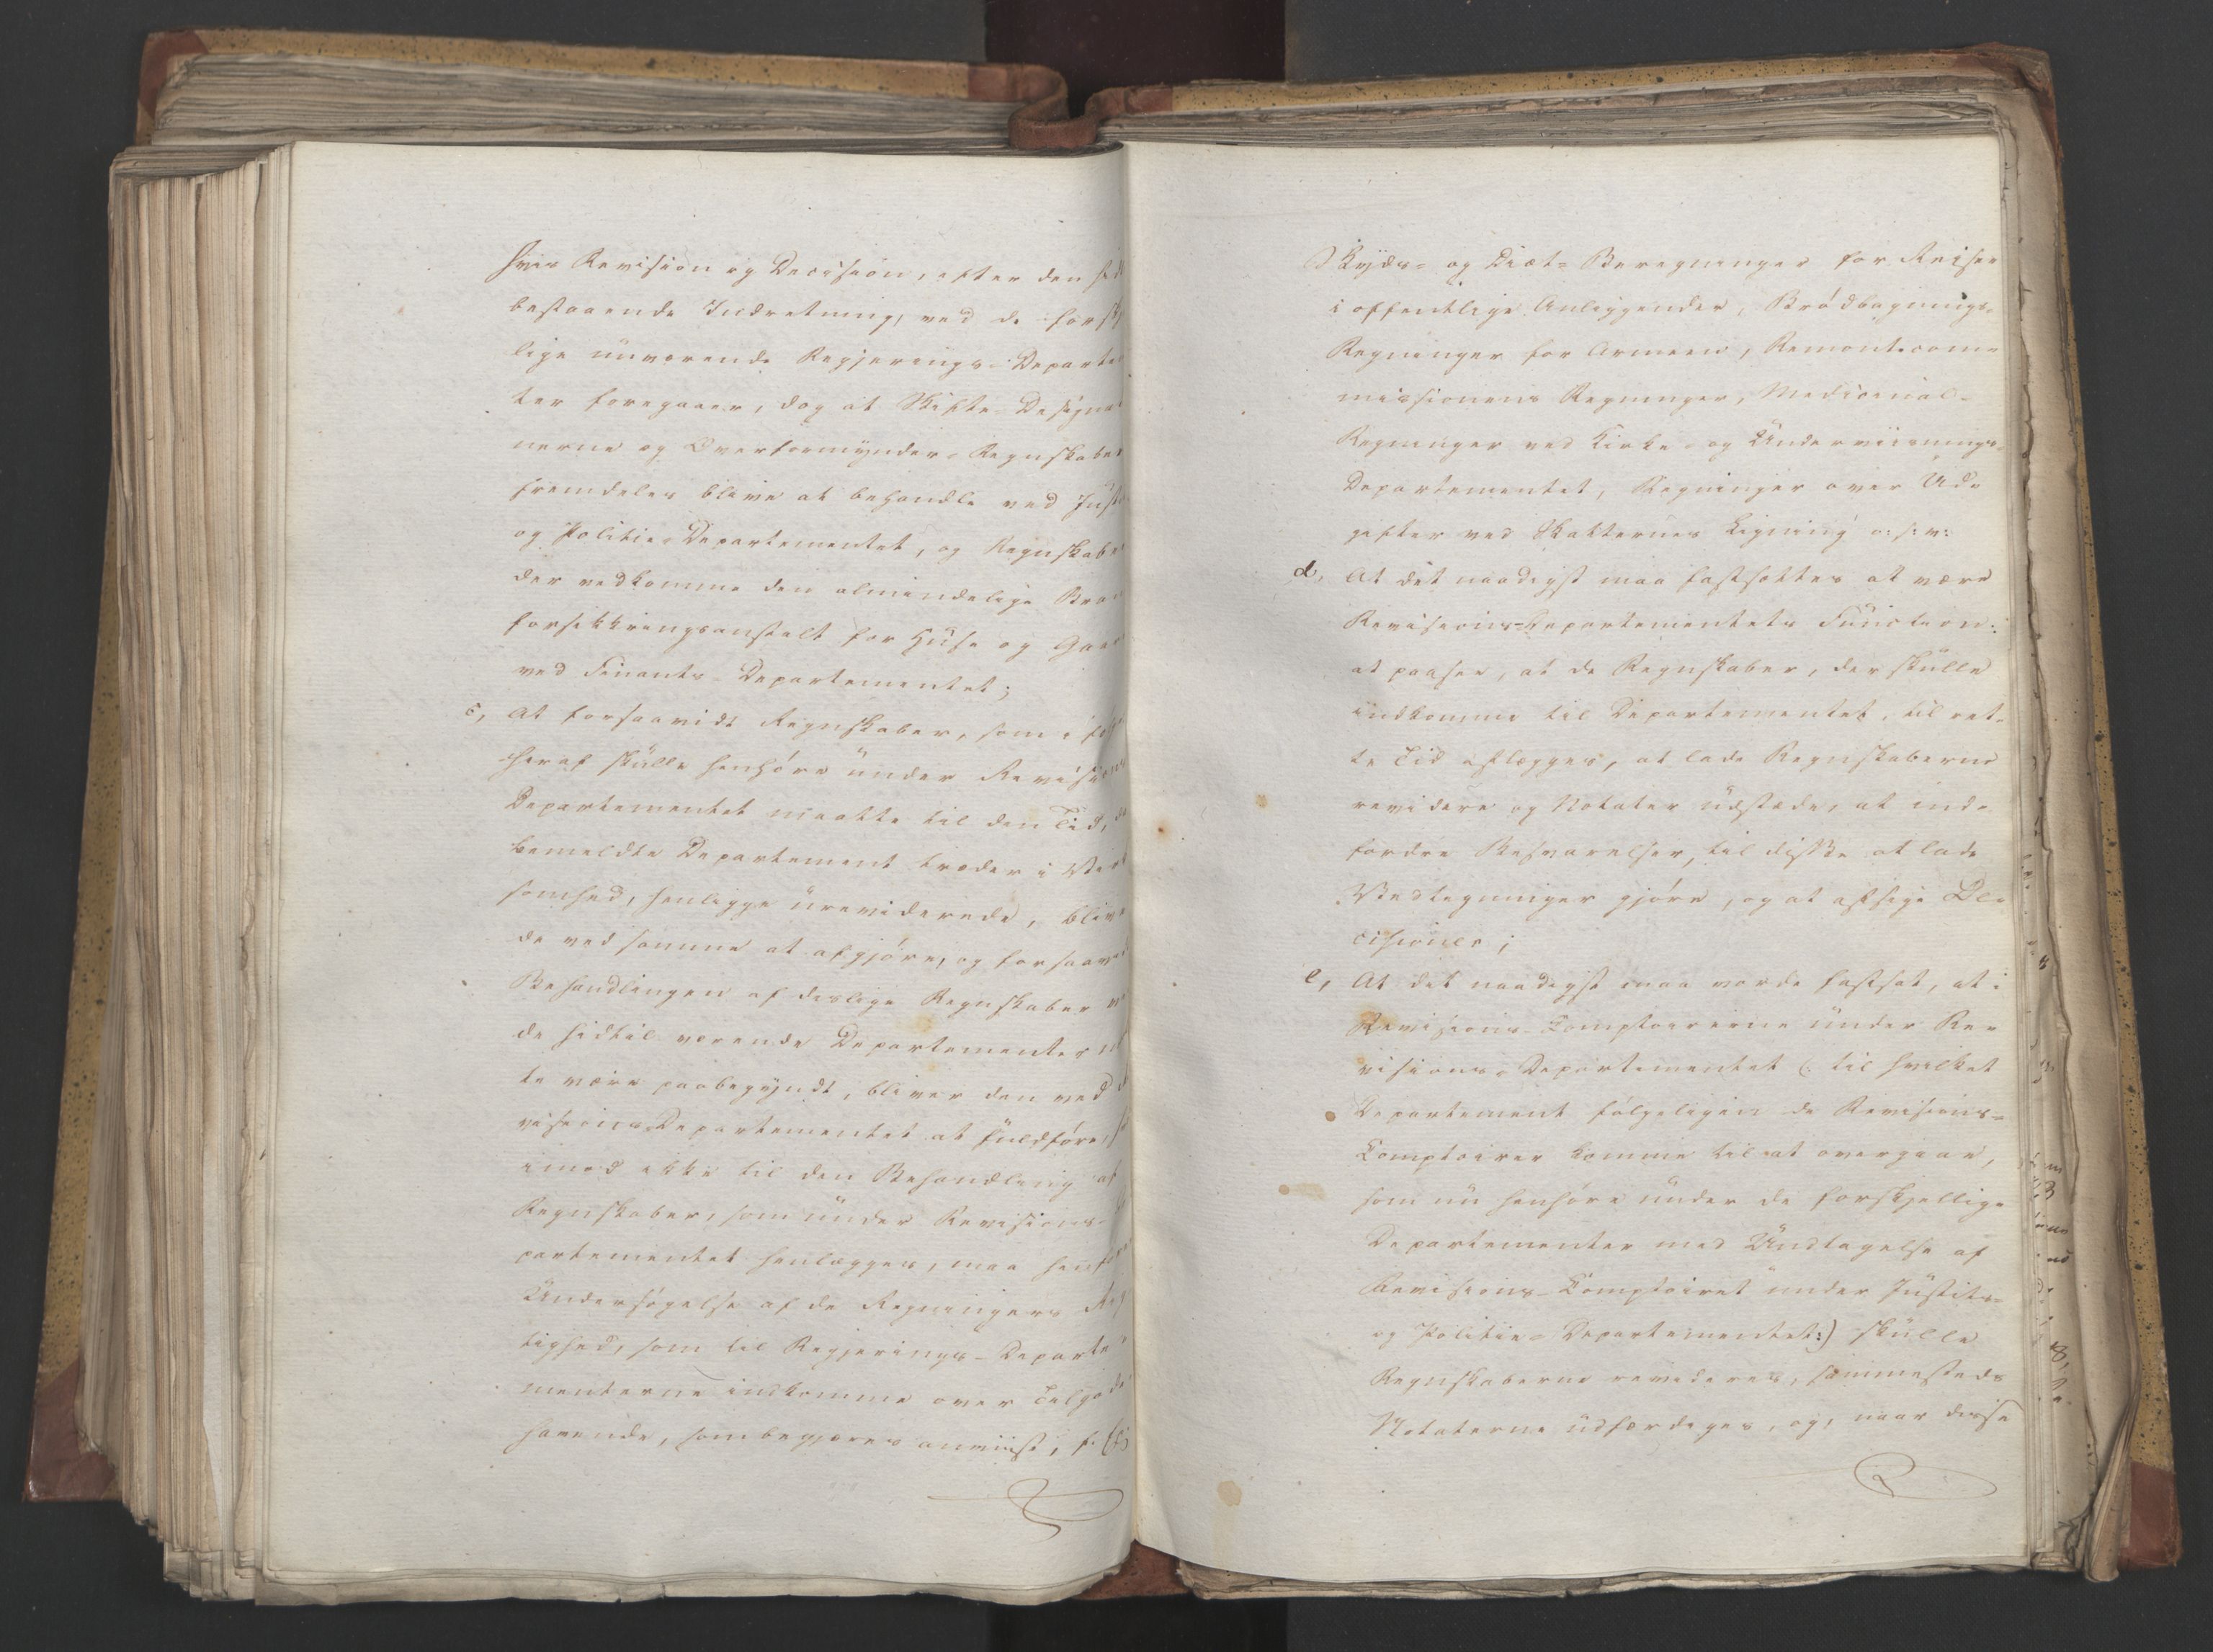 hvis Revision og Decision, efter den
bestaaende Indretning, ved de forskj
lige nuværende Regjerings-Departe
ter foregaaer, dog at Skifte-Designa
nerne og Overformynder-Regnskaber
fremdeles blive at behandle ved Justi
og Politie-Departementet, og Regnskaber
der vedkomme den almindelige Bran
forsikkringsanstalt for Huse og Gaar
ved Finants-Departementet;
c, At forsaavidt Regnskaber, som i føl
heraf skulle henhøre under Revisions
Departementet maatte til den Tid, da
bemeldte Departement træder i Virk
somhed, henligge ureviderede, blive
de ved samme at afgjøre, og forsaavi
Behandlingen af deslige Regnskaber ve
de hidtil værende Departementer
te være paabegyndt, bliver den ved
visions-Departementet at fuldføre,
imod ikke til den Behandling af
Regnskaber, som under Revisions-
partementet henlægges, maa henføre
Undersøgelse af de Regningers Rig
tighed, som til Regjerings-Departe
menterne indkomme over Tilgode
havende, som begjæres anviist, f. Ex
Skyds- og Diæt-Beregninger for Reiser
i offentlige Anliggender, Brødbagnings-
Regninger for Armeen, Remontecom-
missionens Regninger, Medicinal-
Regninger ved Kirke- og Underviisnings-
Departementet, Regninger over Ud-
gifter ved Skatternes Ligning o: s: v:
d, At det naadigst maa fastsættes at være
Revisions-Departementets Function:
at paasee, at de Regnskaber, der skulle
indkomme til Departementet, til ret-
te Tid aflægges, at lade Regnskaberne
revidere og Notater udstæde, at ind-
fordre Besvarelser, til disse at lade
Vedtegninger gjøre, og at afsige De-
cisioner;
e, At det naadigst maa vorde fastsat, at i
Revisions-Comptoirerne under Re-
visions-Departementet (: til hvilket
Departement følgeligen de Revisions-
Comptoirer komme til at overgaae,
som nu henhøre under de forskjellige
Departementer med Undtagelse af
Revisions-Comptoiret under Justits-
og Politie-Departementet:) skulle
Regnskaberne revideres, sammesteds
Notaterne udfærdiges, og, naar disse